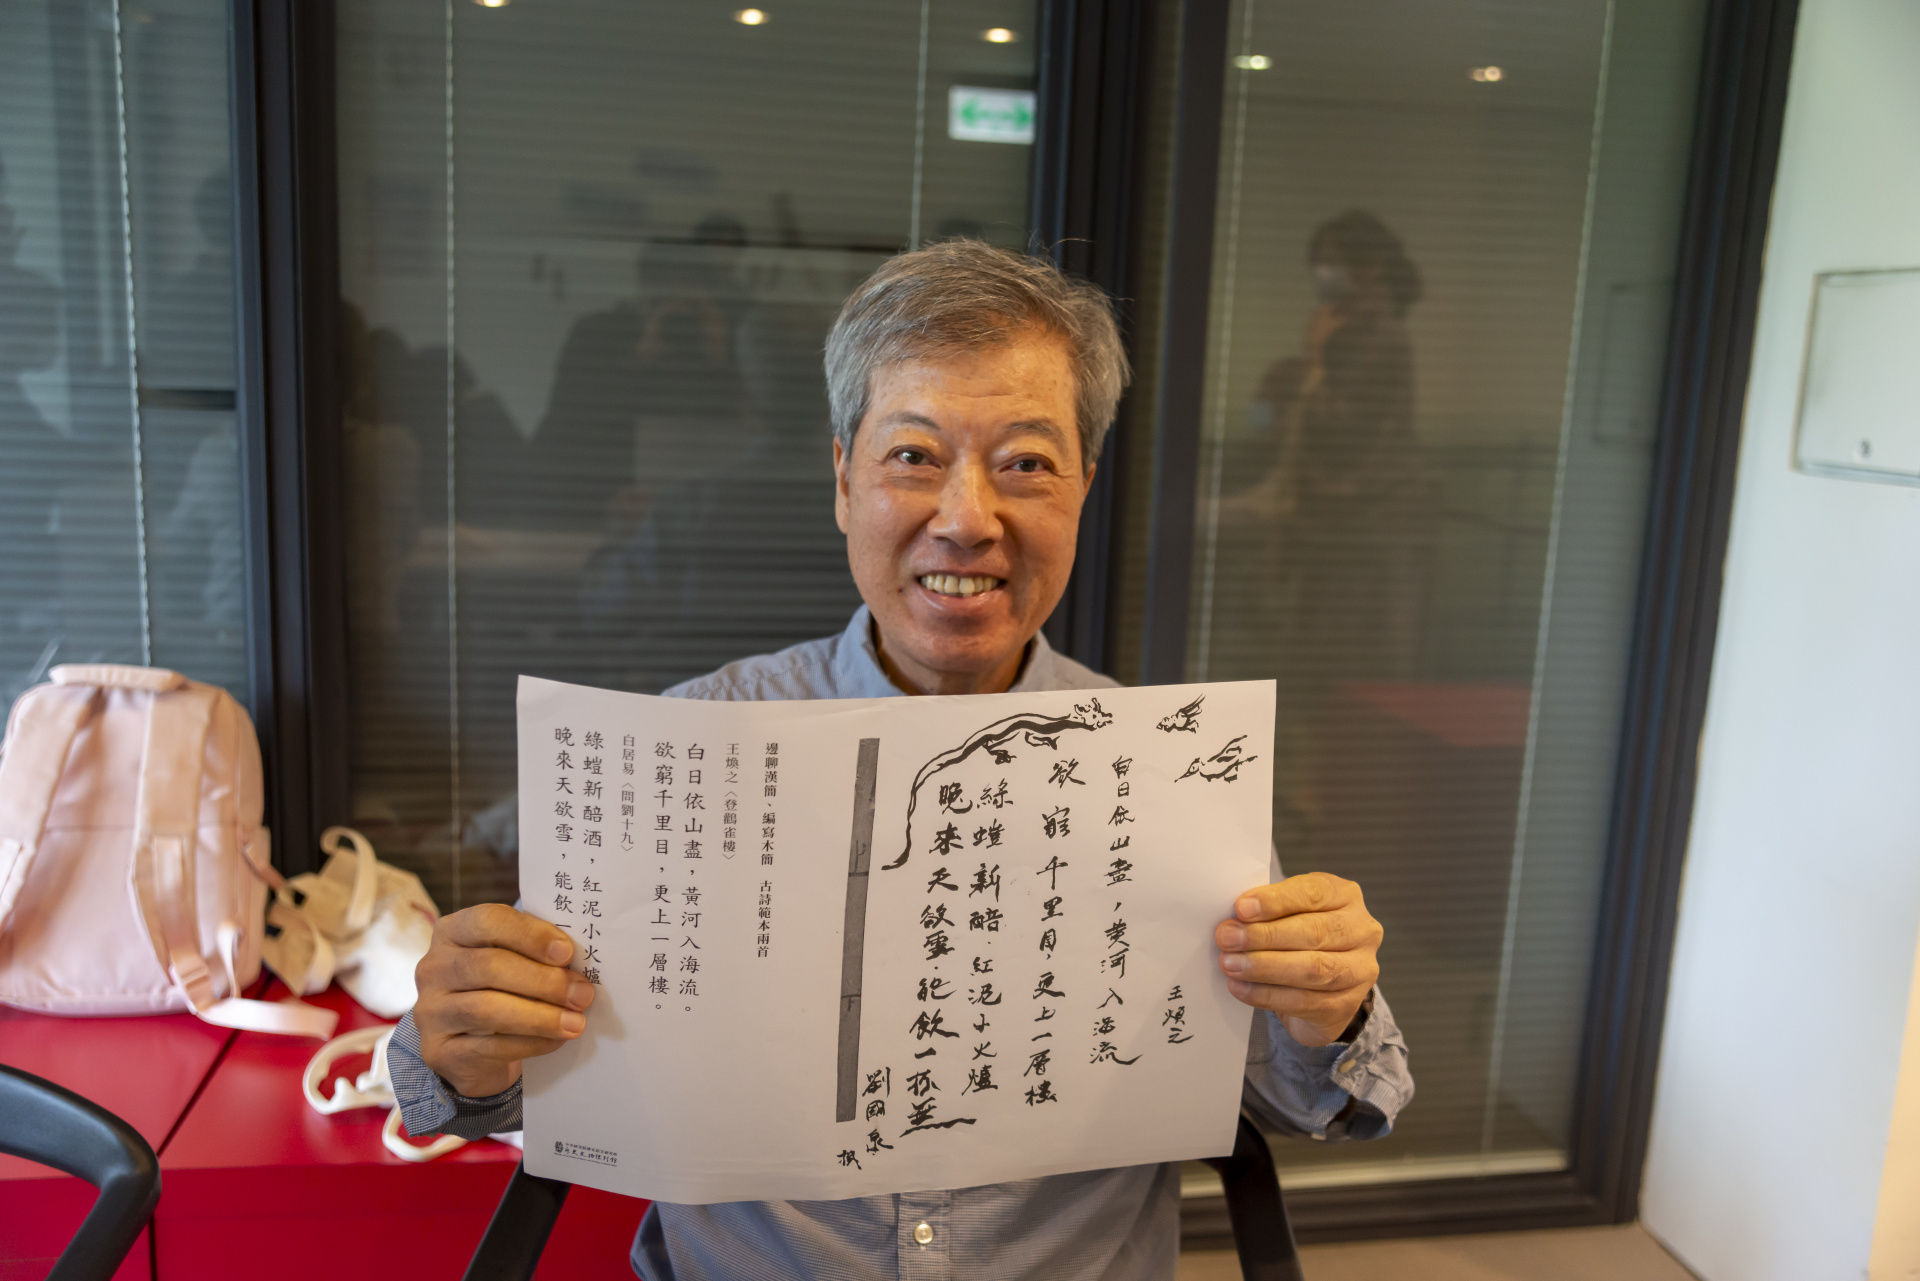 王煥之
白日依山盡,黃河入海流
欲窮千里目,更上一層樓
綠螘新醅.紅泥小火爐
晚來天欲雪.能飲一杯無
劉國泉
上
下
邊聊漢簡、編寫木簡 古詩範本兩首
王煥之〈登鸛雀樓〉
白日依山盡,黃河入海流。
欲窮千里目,更上一層樓。
白居易〈問劉十九〉
綠螘新醅酒,紅泥小火爐
晚來天欲雪,能飲一
歷史文物陳列館